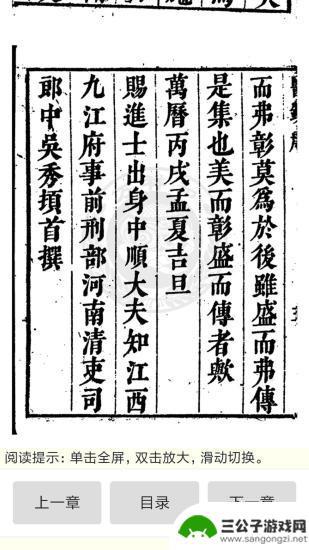 而弗彰莫爲於後雖盛而弗傳
是集也美而彰盛而傳者歟
萬曆丙戌孟夏吉旦
賜進士出身中順大夫知江西
九江府事前刑部河南清吏司
郎中吳秀頓首撰
阅读提示: 单击全屏, 双击放大, 滑动切换。
上一章
目录
下一章
三公子游戏网
www.sangongzi.net